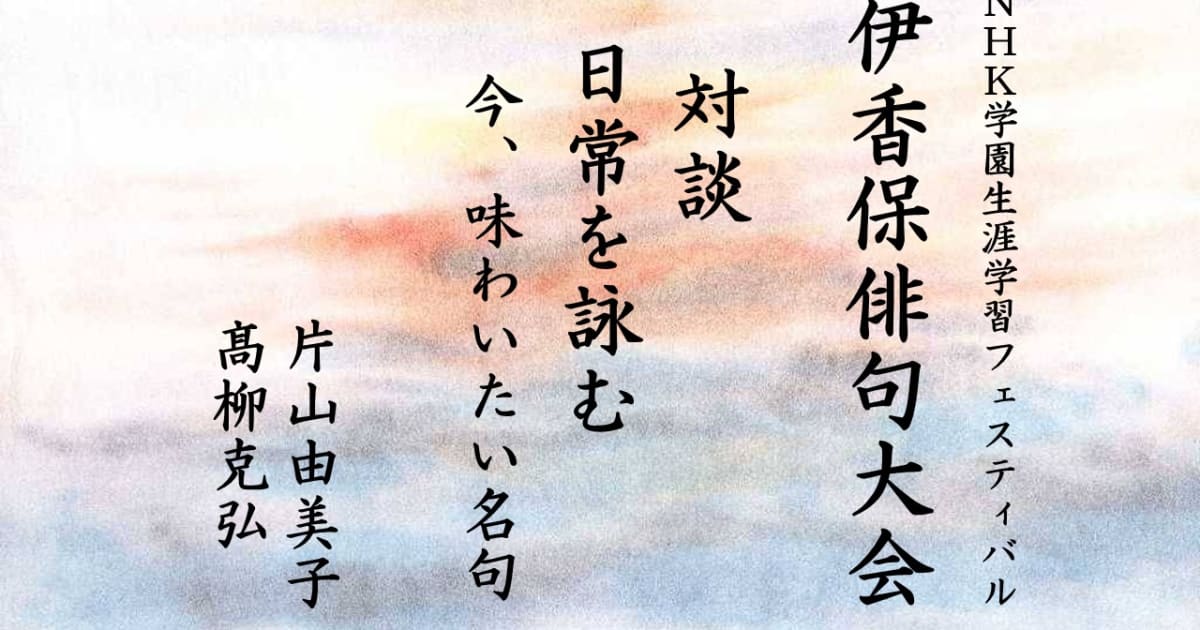 NHK学園生涯学習フェスティバル
伊香保俳句大会
対談
日常を詠む
今、味わいたい名句
片山由美子
髙柳克弘